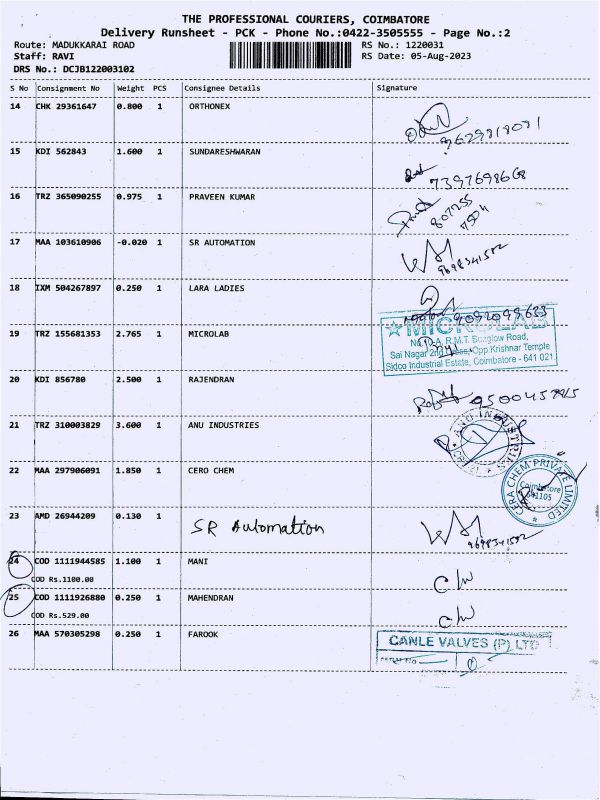 THE PROFESSIONAL COURIERS, COIMBATORE
Delivery Runsheet - PCK - Phone No.:0422-3505555 - Page No.:2
Route: MADUKKARAI ROAD RS No.: 1220031
Staff: RAVI RS Date: 05-Aug-2023
DRS No.: DCJB122003102
S No Consignment No Weight PCS Consignee Details Signature
14 CHK 29361647 0.800 1 ORTHONEX
9629818081
15 KDI 562843 1.600 1 SUNDARESHWARAN
7397698668
16 TRZ 365090255 0.975 1 PRAVEEN KUMAR
807255
7504
17 MAA 103610906 -0.020 1 SR AUTOMATION
9698341582
18 IXM 504267897 0.250 1 LARA LADIES
9092099633
19 TRZ 155681353 2.765 1 MICROLAB
MICROLAB
R.M.T. Bunglow Road,
Sai Nagar 2nd Opp.Krishnar Temple
Sidco Industrial Estate, Coimbatore - 641 021
20 KDI 856780 2.500 1 RAJENDRAN
21 TRZ 310003829 3.600 1 ANU INDUSTRIES
ANU INDUSTRIES
22 MAA 297906091 1.850 1 CERO CHEM
CERA CHEM PRIVATE LIMITED
Coimbatore
641105
23 AMD 26944209 0.130 1 SR Automation
9698341582
24 COD 1111944585 1.100 1 MANI
COD Rs.1100.00
25 COD 1111926880 0.250 1 MAHENDRAN
COD Rs.529.00
26 MAA 570305298 0.250 1 FAROOK
CANLE VALVES (P) LTD